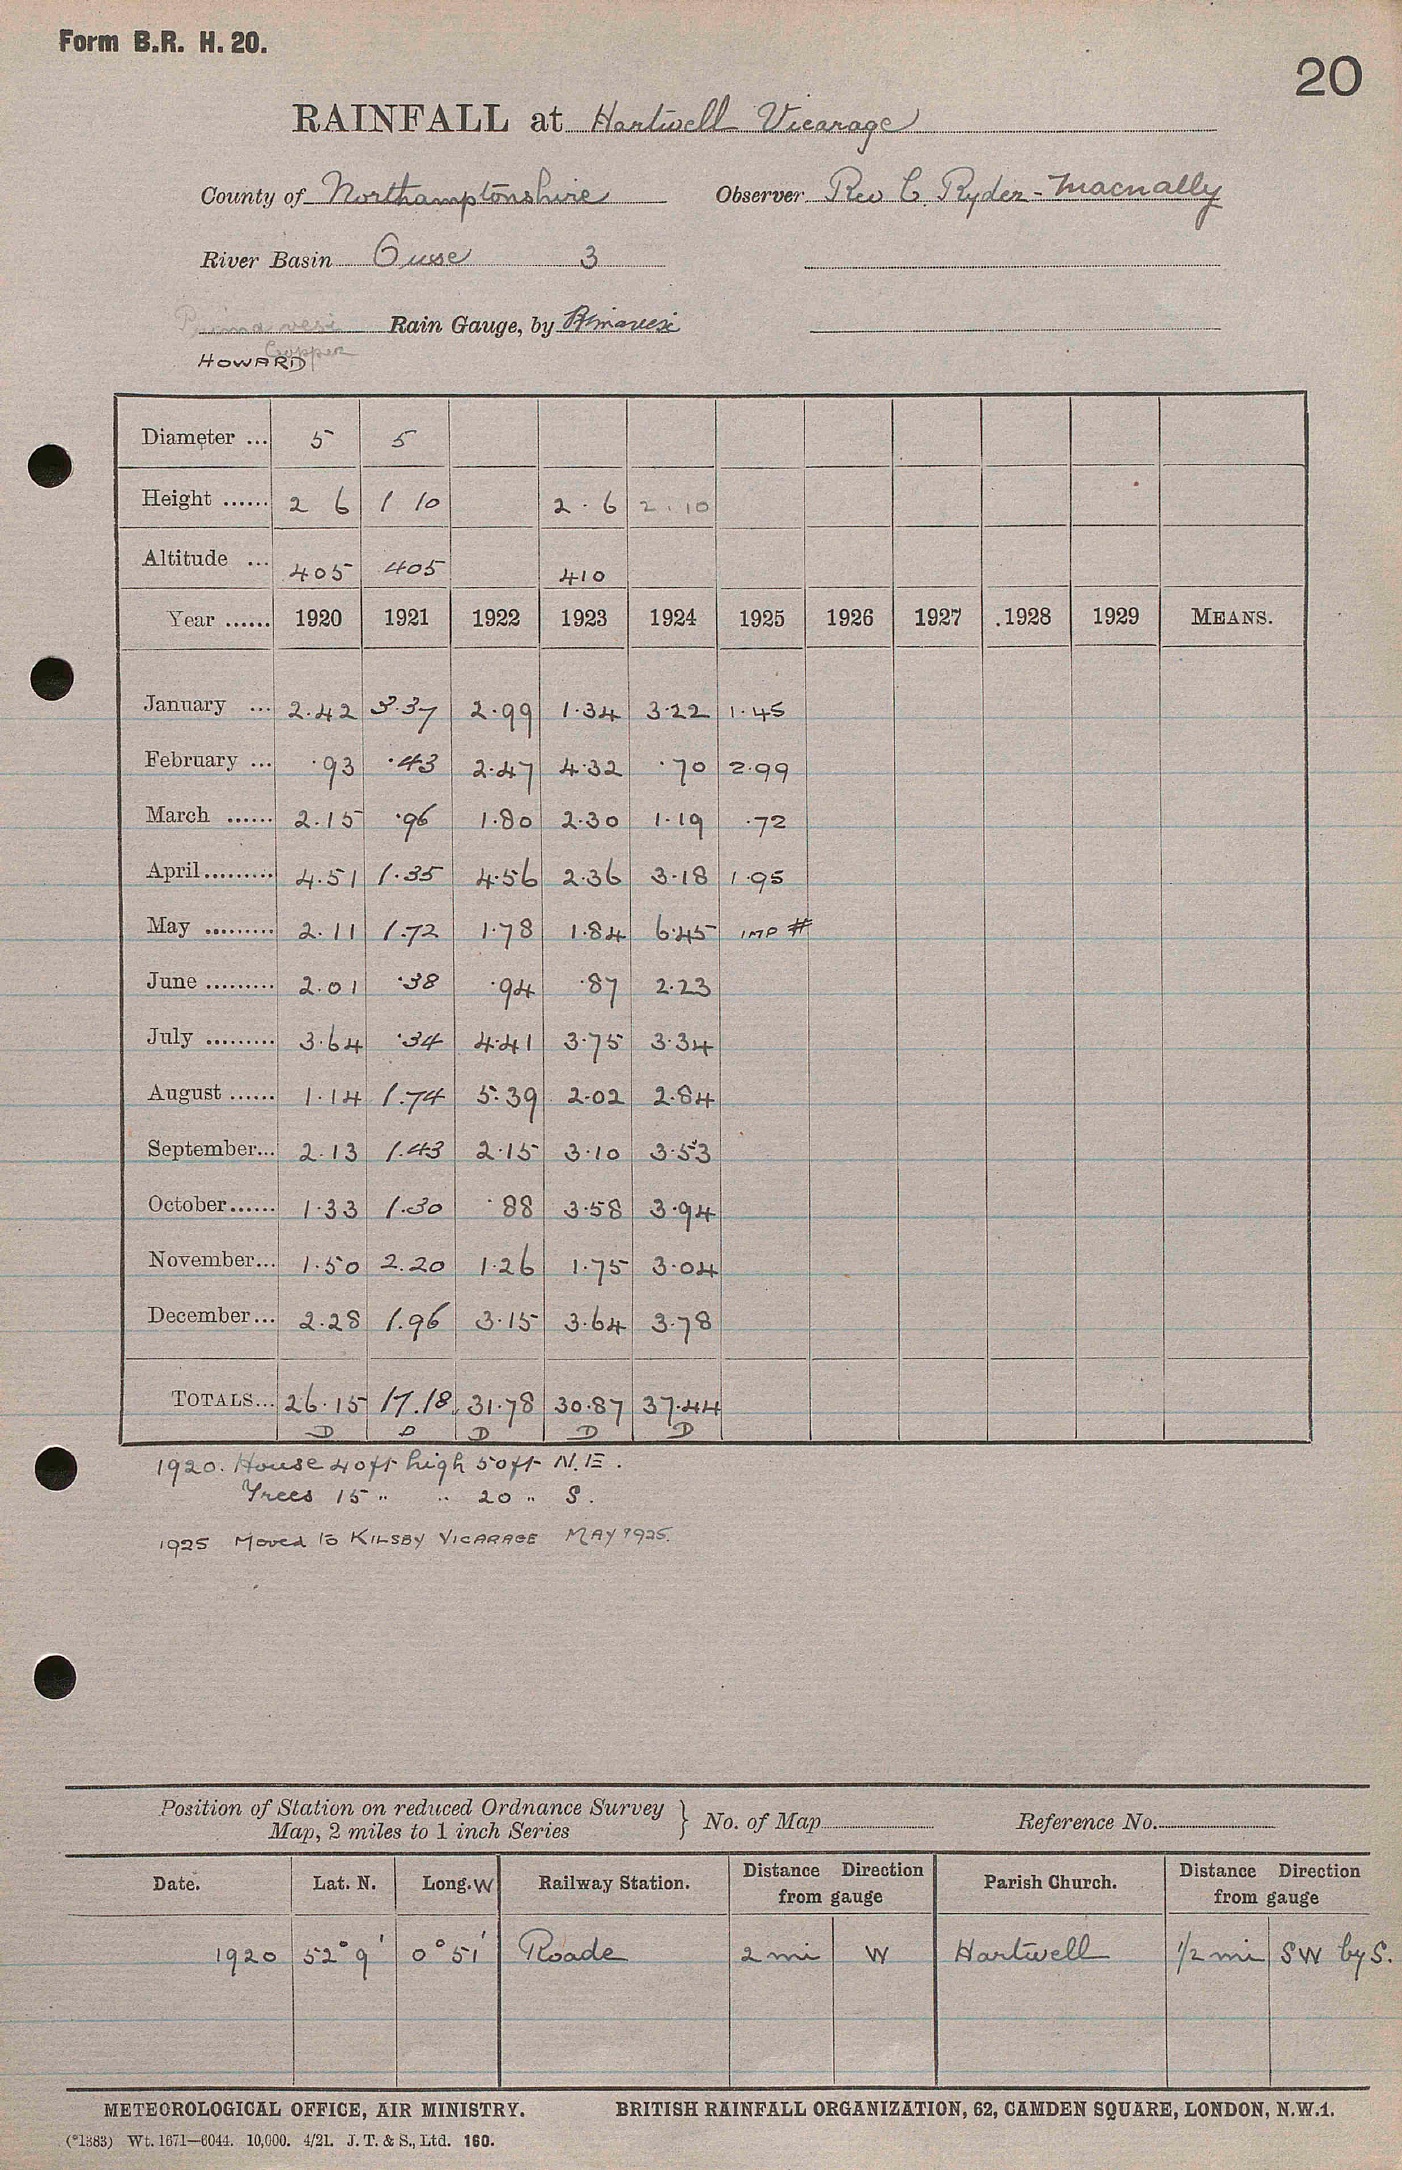 Form B.R. H. 20.
20
RAINFALL at Hartwell Vicarage
County of Northamptonshire Observer Rev C. Ryder-Macnally
River Basin Ouse 3
Primavesi Rain Gauge, by Primavesi
Copper
HOWARD
Diameter ... 5 5
Height ...... 2 6 1 10 2 . 6 2 . 10
Altitude ... 405 405 410
Year ...... 1920 1921 1922 1923 1924 1925 1926 1927 1928 1929 MEANS.
January ... 2.42 3.37 2.99 1.34 3.22 1.45
February ... .93 .43 2.47 4.32 .70 2.99
March ...... 2.15 .96 1.80 2.30 1.19 .72
April ......... 4.51 1.35 4.56 2.36 3.18 1.95
May ......... 2.11 1.72 1.78 1.84 6.45 IMP #
June ......... 2.01 .38 .94 .87 2.23
July ......... 3.64 .34 4.41 3.75 3.34
August ...... 1.14 1.74 5.39 2.02 2.84
September... 2.13 1.43 2.15 3.10 3.53
October...... 1.33 1.30 .88 3.58 3.94
November... 1.50 2.20 1.26 1.75 3.04
December... 2.28 1.96 3.15 3.64 3.78
TOTALS... 26.15 17.18 31.78 30.87 37.44
D D D D D
1920. House 40ft high 50ft N.E.
Trees 15 " " 20 " S.
1925 Moved to KILSBY VICARAGE MAY 1925.
Position of Station on reduced Ordnance Survey
Map, 2 miles to 1 inch Series } No. of Map Reference No.
Date. Lat. N. Long. W Railway Station. Distance Direction from gauge Parish Church. Distance Direction from gauge
1920 52° 9' 0° 51' Roade 2 mi W Hartwell 1/2 mi SW by S.
METEOROLOGICAL OFFICE, AIR MINISTRY. BRITISH RAINFALL ORGANIZATION, 62, CAMDEN SQUARE, LONDON, N.W.1.
(*1383) Wt. 1671—6044. 10,000. 4/21. J. T. & S., Ltd. 160.